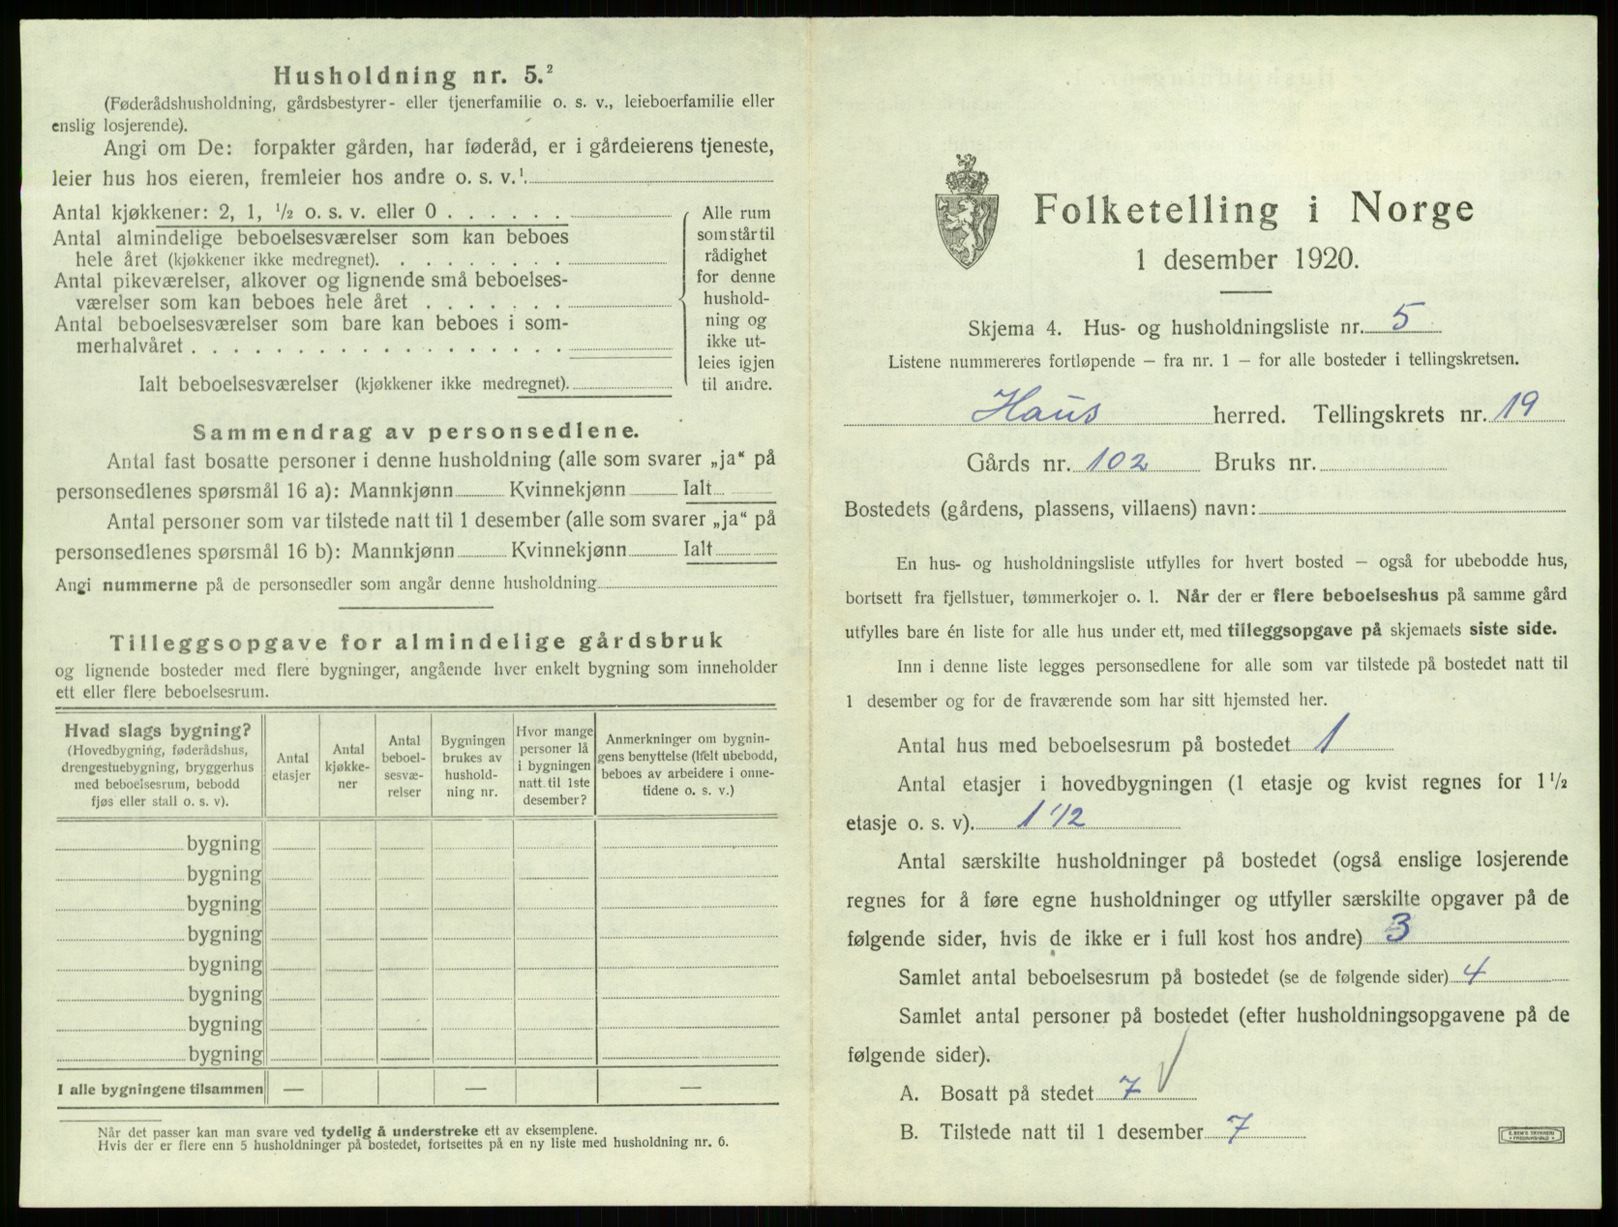 Husholdning nr. 5.²
(Føderådshusholdning, gårdsbestyrer- eller tjenerfamilie o. s. v., leieboerfamilie eller
enslig losjerende).
Angi om De: forpakter gården, har føderåd, er i gårdeierens tjeneste,
leier hus hos eieren, fremleier hos andre o. s. v.¹
Antal kjøkkener: 2, 1, ½ o. s. v. eller 0
Antal almindelige beboelsesværelser som kan beboes
hele året (kjøkkener ikke medregnet).
Antal pikeværelser, alkover og lignende små beboelses-
værelser som kan beboes hele året
Antal beboelsesværelser som bare kan beboes i som-
merhalvåret
Ialt beboelsesværelser (kjøkkener ikke medregnet).
Alle rum
som står til
rådighet
for denne
hushold-
ning og
ikke ut-
leies igjen
til andre.
Sammendrag av personsedlene.
Antal fast bosatte personer i denne husholdning (alle som svarer „ja“ på
personsedlenes spørsmål 16 a): Mannkjønn Kvinnekjønn Ialt
Antal personer som var tilstede natt til 1 desember (alle som svarer „ja“ på
personsedlenes spørsmål 16 b): Mannkjønn Kvinnekjønn Ialt
Angi nummerne på de personsedler som angår denne husholdning
Tilleggsopgave for almindelige gårdsbruk
og lignende bosteder med flere bygninger, angående hver enkelt bygning som inneholder
ett eller flere beboelsesrum.
Hvad slags bygning?
(Hovedbygning, føderådshus,
drengestuebygning, bryggerhus
med beboelsesrum, bebodd
fjøs eller stall o. s. v).
Antal
etasjer
Antal
kjøkke-
ner
Antal
beboel-
sesvæ-
relser
Bygningen
brukes av
hushold-
ning nr.
Hvor mange
personer lå
i bygningen
natt til 1ste
desember?
Anmerkninger om bygnin-
gens benyttelse (Helt ubebodd,
beboes av arbeidere i onne-
tidene o. s. v.)
bygning
bygning
bygning
bygning
bygning
bygning
bygning
bygning
I alle bygningene tilsammen — — —
Når det passer kan man svare ved tydelig å understreke ett av eksemplene.
Hvis der er flere enn 5 husholdninger på bostedet, fortsettes på en ny liste med husholdning nr. 6.
Folketelling i Norge
1 desember 1920.
Skjema 4. Hus- og husholdningsliste nr. 5
Listene nummereres fortløpende – fra nr. 1 – for alle bosteder i tellingskretsen.
Haus herred. Tellingskrets nr. 19
Gårds nr. 102 Bruks nr.
Bostedets (gårdens, plassens, villaens) navn:
En hus- og husholdningsliste utfylles for hvert bosted – også for ubebodde hus,
bortsett fra fjellstuer, tømmerkojer o. l. Når der er flere beboelseshus på samme gård
utfylles bare én liste for alle hus under ett, med tilleggsopgave på skjemaets siste side.
Inn i denne liste legges personsedlene for alle som var tilstede på bostedet natt til
1 desember og for de fraværende som har sitt hjemsted her.
Antal hus med beboelsesrum på bostedet 1
Antal etasjer i hovedbygningen (1 etasje og kvist regnes for 1 ½
etasje o. s. v). 1 1/2
Antal særskilte husholdninger på bostedet (også enslige losjerende
regnes for å føre egne husholdninger og utfyller særskilte opgaver på de
følgende sider, hvis de ikke er i full kost hos andre) 3
Samlet antal beboelsesrum på bostedet (se de følgende sider) 4
Samlet antal personer på bostedet (efter husholdningsopgavene på de
følgende sider).
A. Bosatt på stedet 7
B. Tilstede natt til 1 desember 7